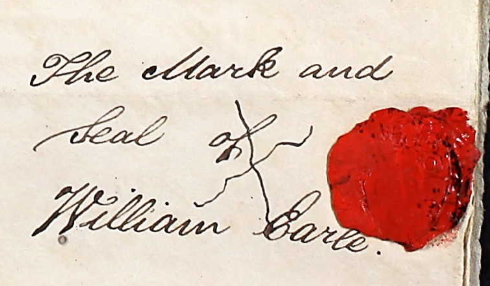 The Mark and
Seal of
William Earle.